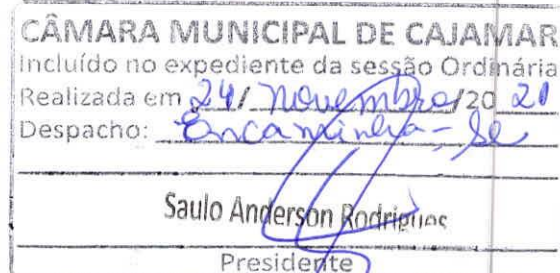 CÂMARA MUNICIPAL DE CAJAMAR
Incluído no expediente da sessão Ordinária
Realizada em 24/ Novembro/20 21
Despacho: Encaminha-se
Saulo Anderson Rodrigues
Presidente